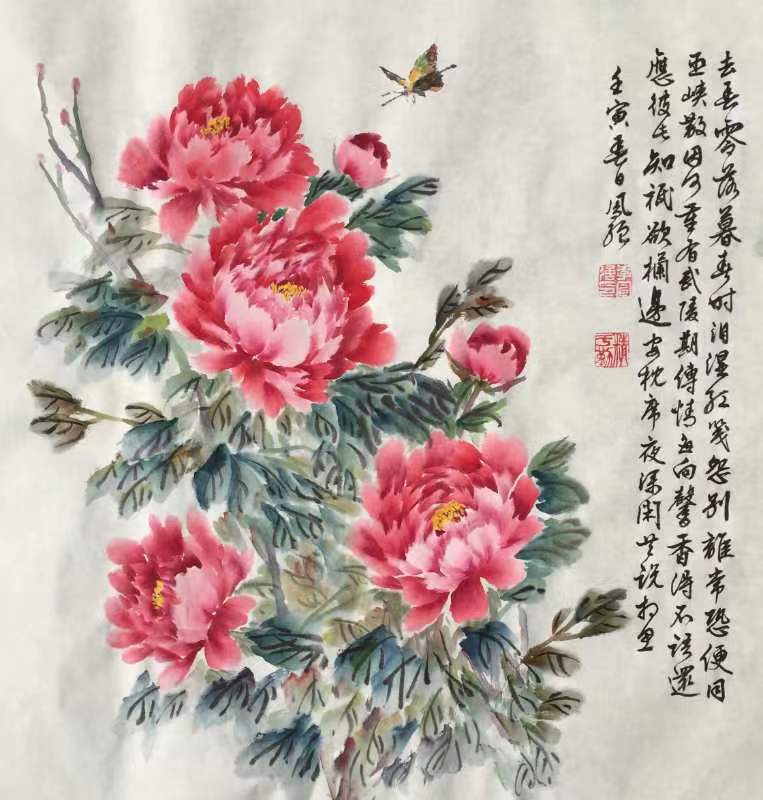 去春零落暮春时泪湿红箋怨别離常恐便同
巫峡散因何重有武陵期傳情每向馨香得不语還
應彼此知祇欲欄邊安枕席夜深闲共说相思
壬寅春日